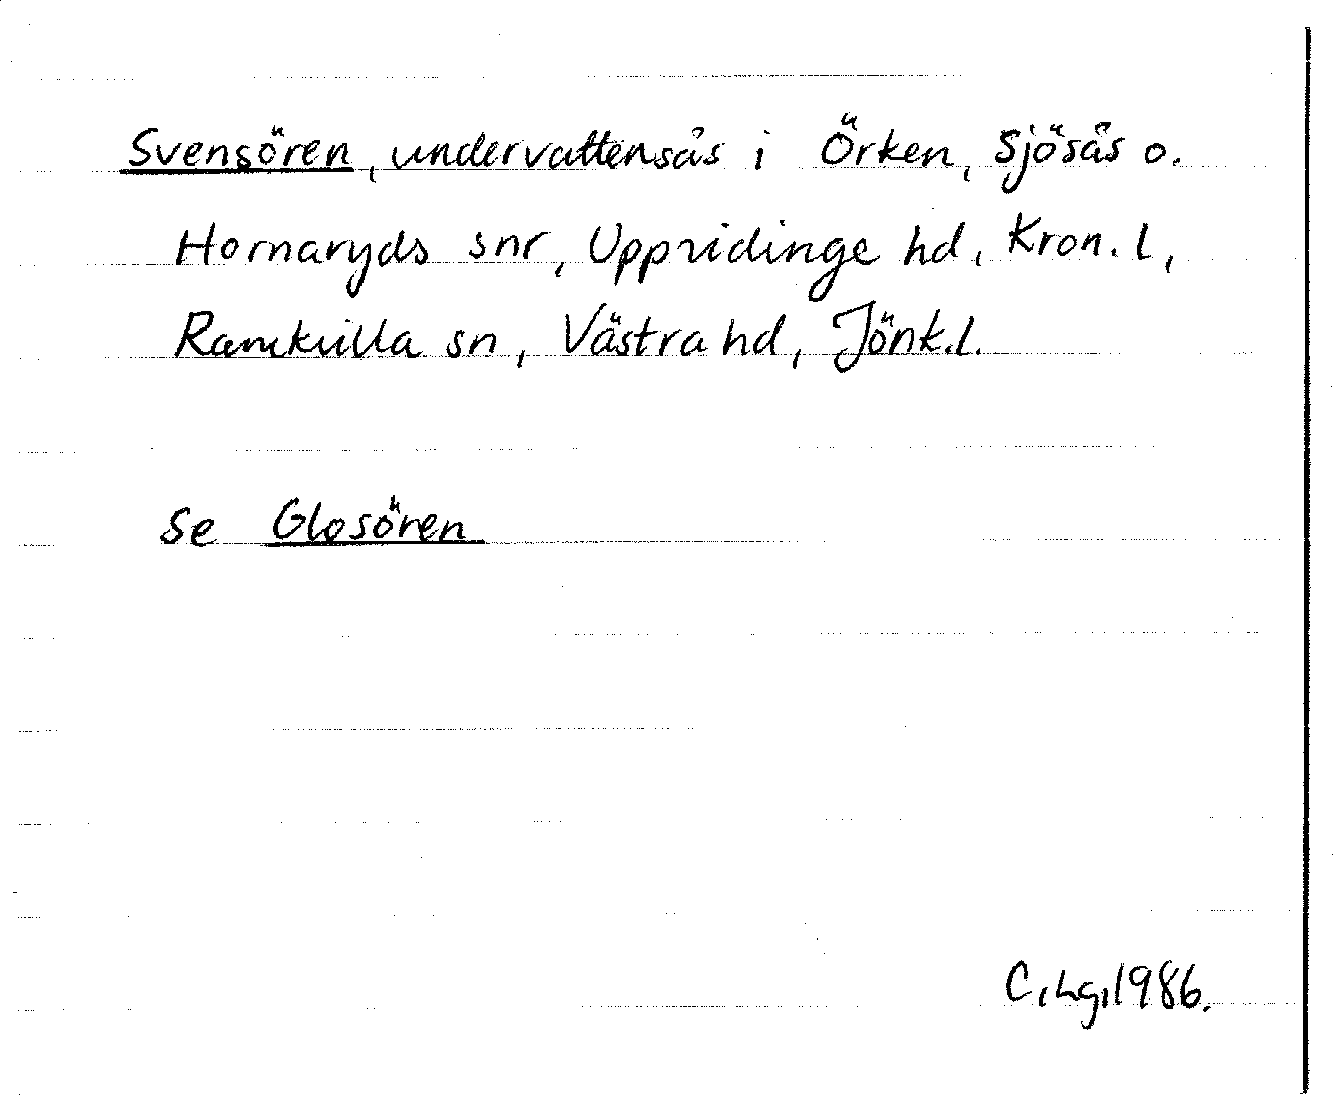 Svensören, undervattensås i Örken, Sjösås o.
Hornaryds snr, Uppvidinge hd, Kron. l,
Ramkvilla sn, Västra hd, Jönk.l.
se Glosören
C,Lg,1986.